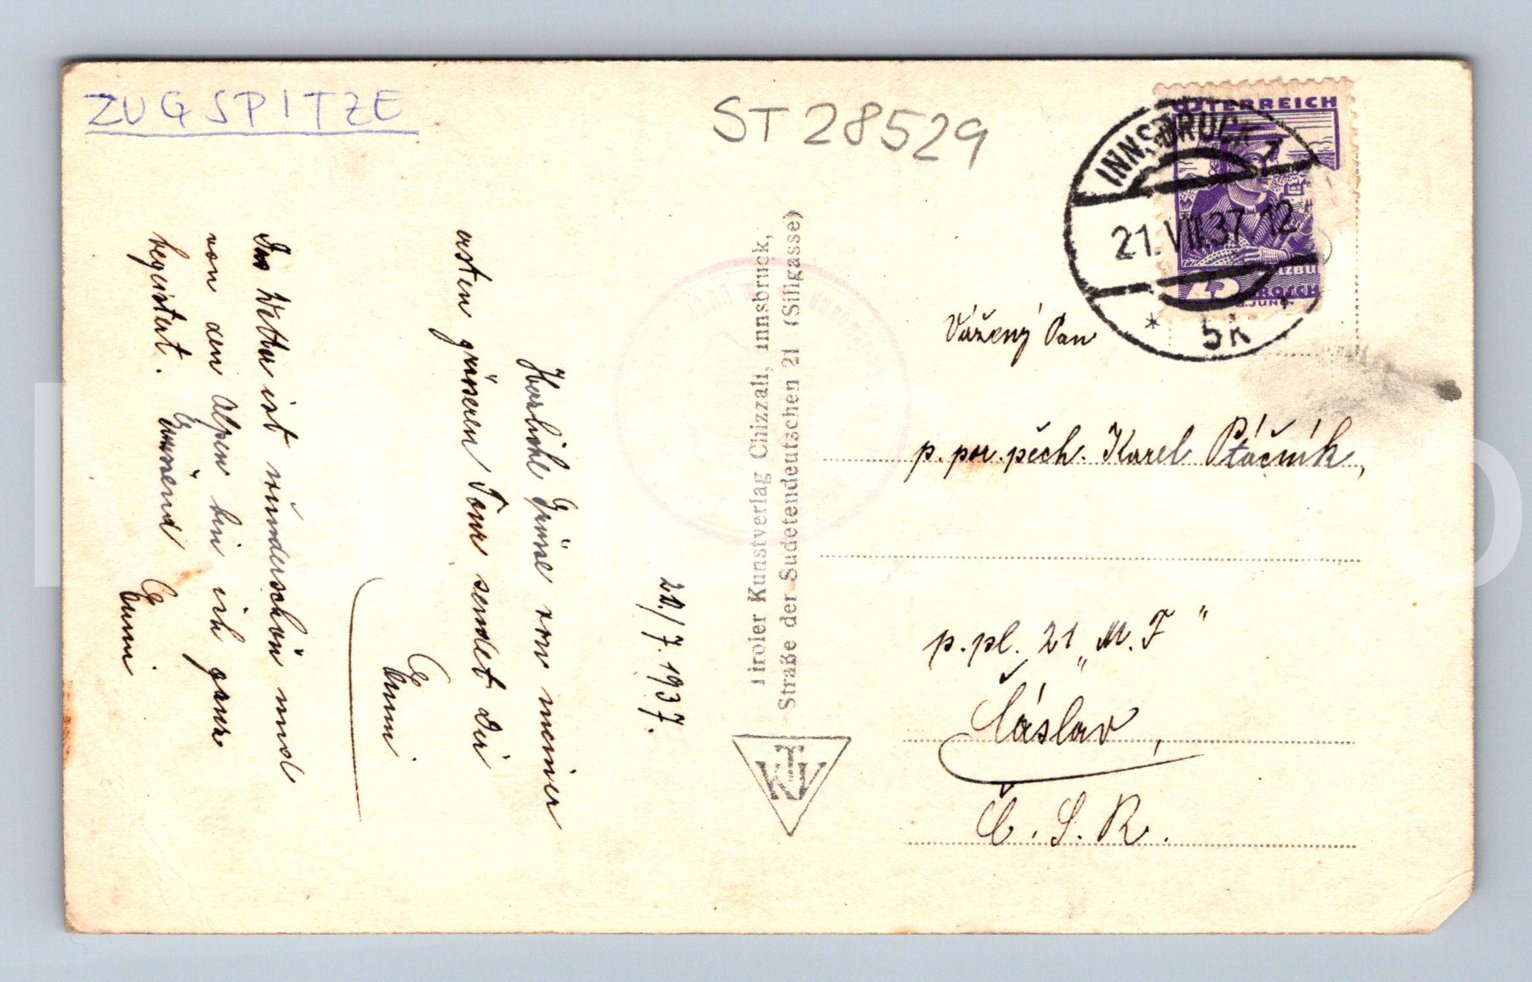 ZUGSPITZE
ST 28529
20./7.1937.
Herzliche Grüsse von meiner
ersten grösseren Tour sendet Dir
Emmi
Das Wetter ist wunderschön und
von den Alpen bin ich ganz
begeistert. Grüssend
Emmi
Tiroler Kunstverlag Chizzali, Innsbruck,
Straße der Sudetendeutschen 21 (Sillgasse)
KTV
ÖSTERREICH
INNSBRUCK 1
21.VII.37.12
* 5k *
Vážený Pan
p. por. pěch. Karel Ptáčník,
p. pl. 21 „M. F"
Čáslav,
Č. S. R.